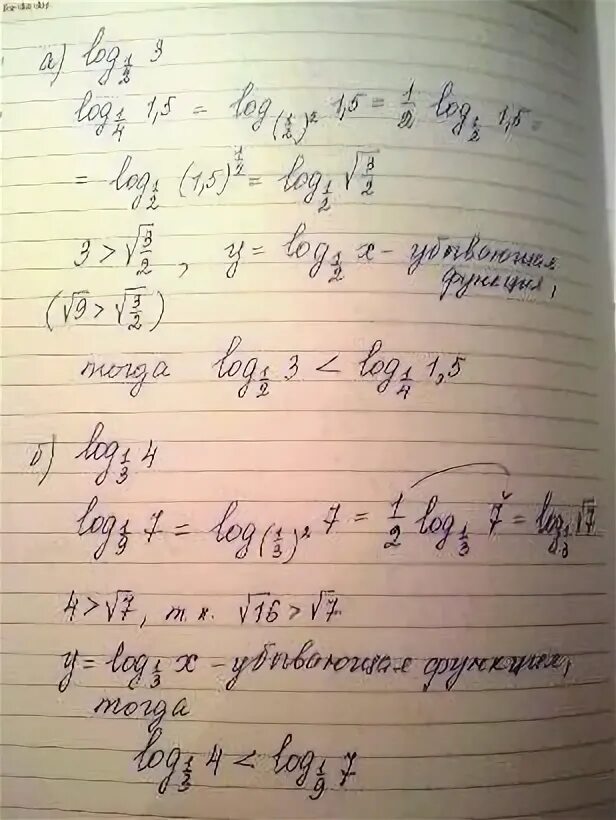 а) log_{1/2} 3
log_{1/4} 1,5 = log_{(1/2)^2} 1,5 = 1/2 log_{1/2} 1,5 =
= log_{1/2} (1,5)^{1/2} = log_{1/2} √(3/2)
3 > √(3/2) , y = log_{1/2} x - убывающая
функция,
(√9 > √(3/2))
тогда log_{1/2} 3 < log_{1/4} 1,5
б) log_{1/3} 4
log_{1/9} 7 = log_{(1/3)^2} 7 = 1/2 log_{1/3} 7 = log_{1/3} √7
4 > √7, т.к. √16 > √7
y = log_{1/3} x - убывающая функция,
тогда
log_{1/3} 4 < log_{1/9} 7